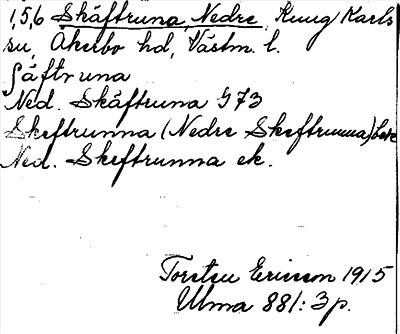 1,5,6 Skäftruna, Nedre, Kung Karls
su, Åkerbo hd, Västm. l.
Säftruna
Ned. Skäftruna G73
Skeftrunna (Nedre Skeftrunna)
Ned. Skeftrunna ek.
Torsten Ericson 1915
Ulma 881: 3 p.